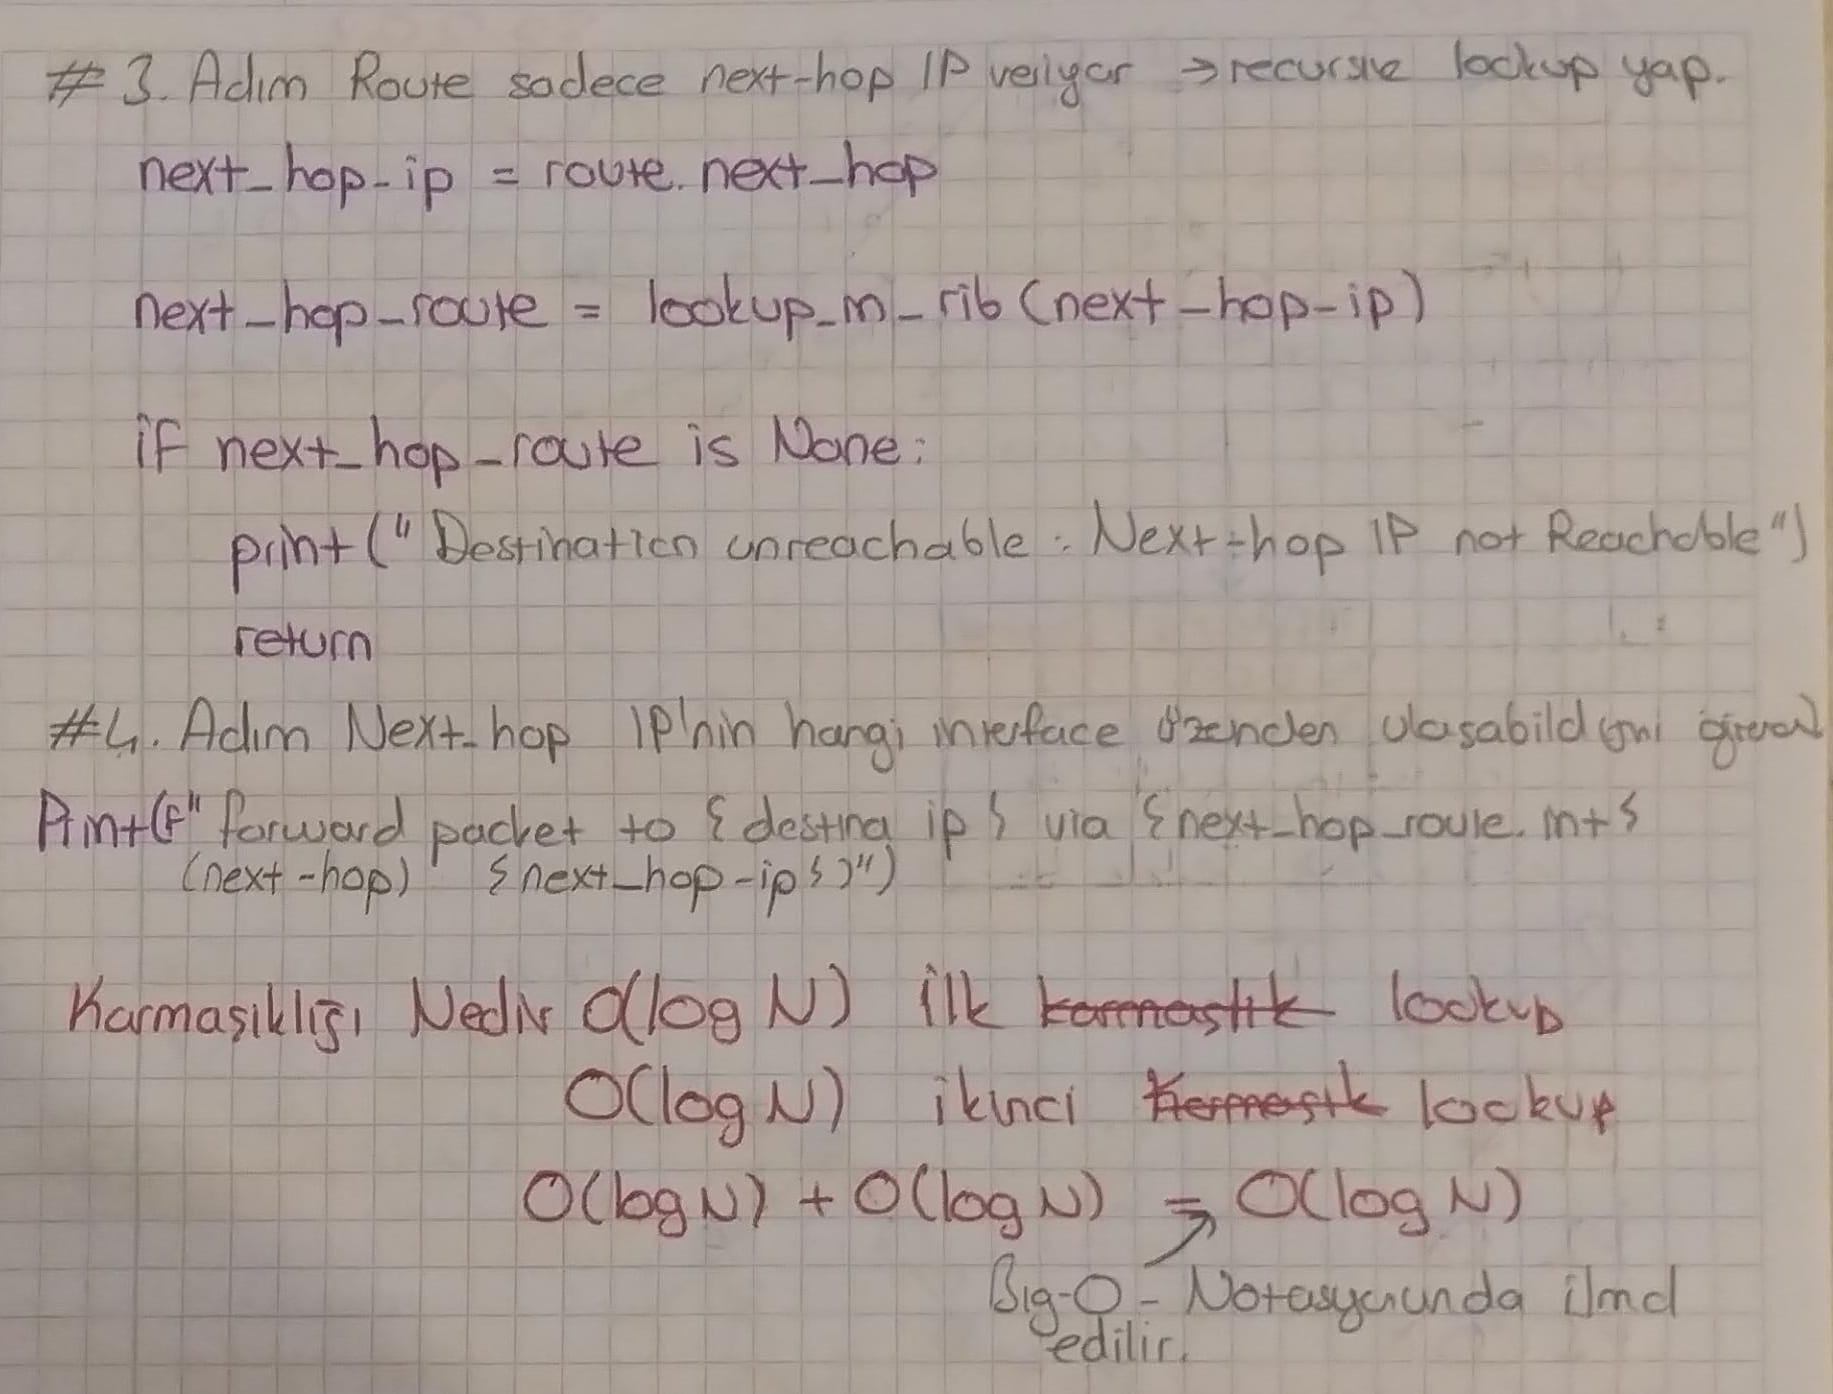 # 3. Adım Route sadece next-hop IP veriyor → recursive lookup yap.
next_hop-ip = route. next_hop
next_hop_route = lookup_in_rib (next_hop-ip)
if next_hop_route is None:
print ("Destination unreachable : Next-hop IP not Reachable")
return
#4. Adım Next-hop IP'nin hangi interface üzerinden ulaşabildiğini
Print(f" forward packet to { desting ip } via {next_hop_route. int}
(next-hop) {next_hop-ip})")
Karmaşıklığı Nedir O(log N) ilk karmaşık lookup
O(log N) ikinci Karmaşık lookup
O(log N) + O(log N) = O(log N)
Big-O - Notasyonunda
edilir.